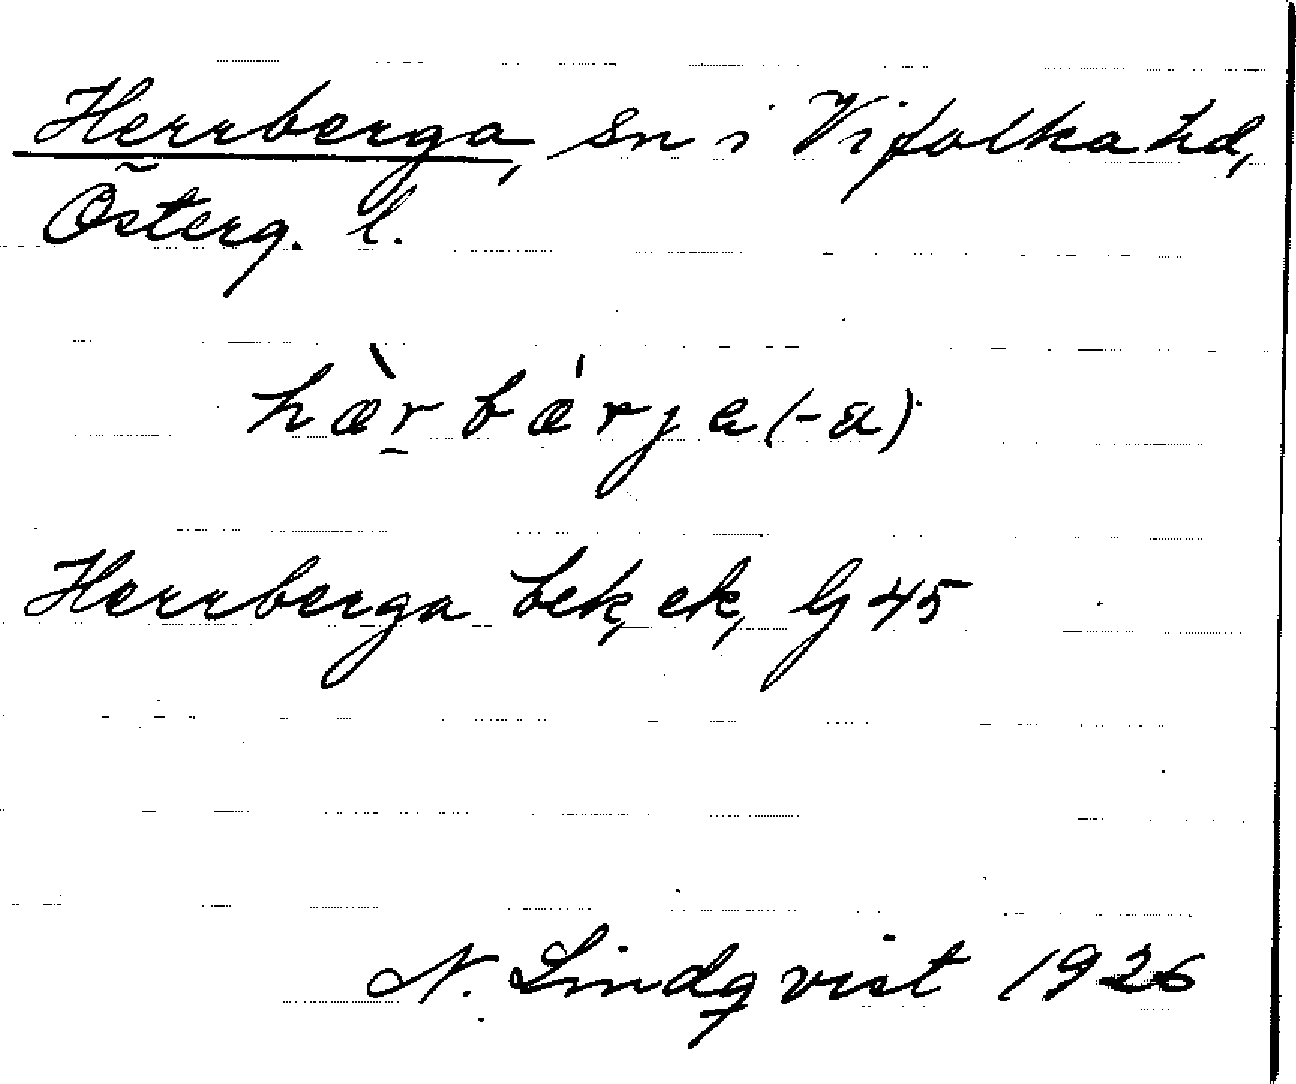 Herrberga, sn i Vifolka hd,
Österg. l.
hær̲bærja (-a)
Herrberga bek, ek, G 45
N. Lindqvist 1926